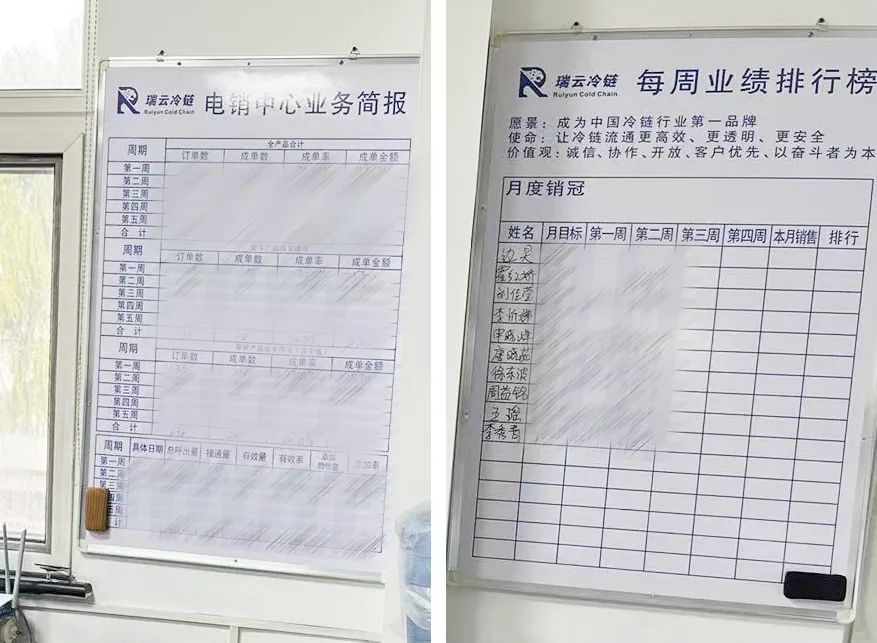 瑞云冷链
Ruiyun Cold Chain
电销中心业务简报
周期 全产品合计
订单数 成单数 成单率 成单金额
第一周
第二周
第三周
第四周
第五周
合 计
周期
订单数 成单数 成单率 成单金额
第一周
第二周
第三周
第四周
第五周
合 计
周期
订单数 成单数 成单率 成单金额
第一周
第二周
第三周
第四周
第五周
合 计
周期 具体日期 总呼出量 接通量 有效量 有效率 添加微信量 添加率
第一周
第二周
第三周
四周
五周
计
瑞云冷链
Ruiyun Cold Chain
每周业绩排行榜
愿景：成为中国冷链行业第一品牌
使命：让冷链流通更高效、更透明、更安全
价值观：诚信、协作、开放、客户优先、以奋斗者为本
月度销冠
姓名 月目标 第一周 第二周 第三周 第四周 本月销售 排行
边昊
刘佳莹
李忻娜
申晓峰
徐东波
周益铭
王瑶
李秀青